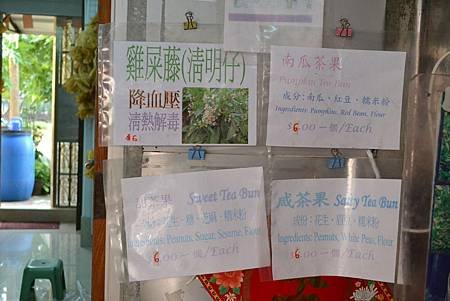 雞屎藤(清明仔)
降血壓
清熱解毒
$6
南瓜茶果
Pumpkin Tea Bun
成分:南瓜、紅豆、糯米粉
Ingredients: Pumpkins, Red Bean, Flour
$6.00~一個/Each
甜茶果 Sweet Tea Bun
成份:花生、糖、芝麻、糯米粉
Ingredients: Peanuts, Sugar, Sesame, Flour
$6.00~一個/Each
咸茶果 Salty Tea Bun
成份:花生、眉豆、糯米粉
Ingredients: Peanuts, White Peas, Flour
$6.00~一個/Each